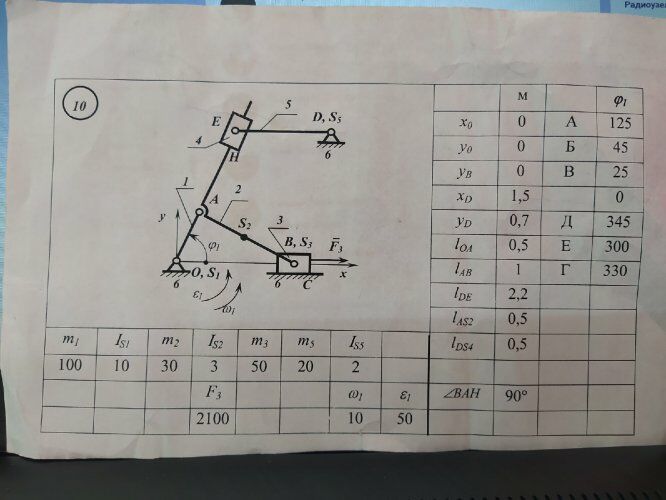 Радиоузел
10
E
5
D, S5
4
6
H
1
A
2
y
S2
3
φ1
B, S3
F3
O, S1
6
6
C
x
ε1
ω1
м φ1
x0 0 А 125
y0 0 Б 45
yB 0 В 25
xD 1,5 0
yD 0,7 Д 345
lOA 0,5 Е 300
lAB 1 Г 330
lDE 2,2
lAS2 0,5
lDS4 0,5
∠BAH 90°
m1 IS1 m2 IS2 m3 m5 IS5
100 10 30 3 50 20 2
F3 ω1 ε1
2100 10 50